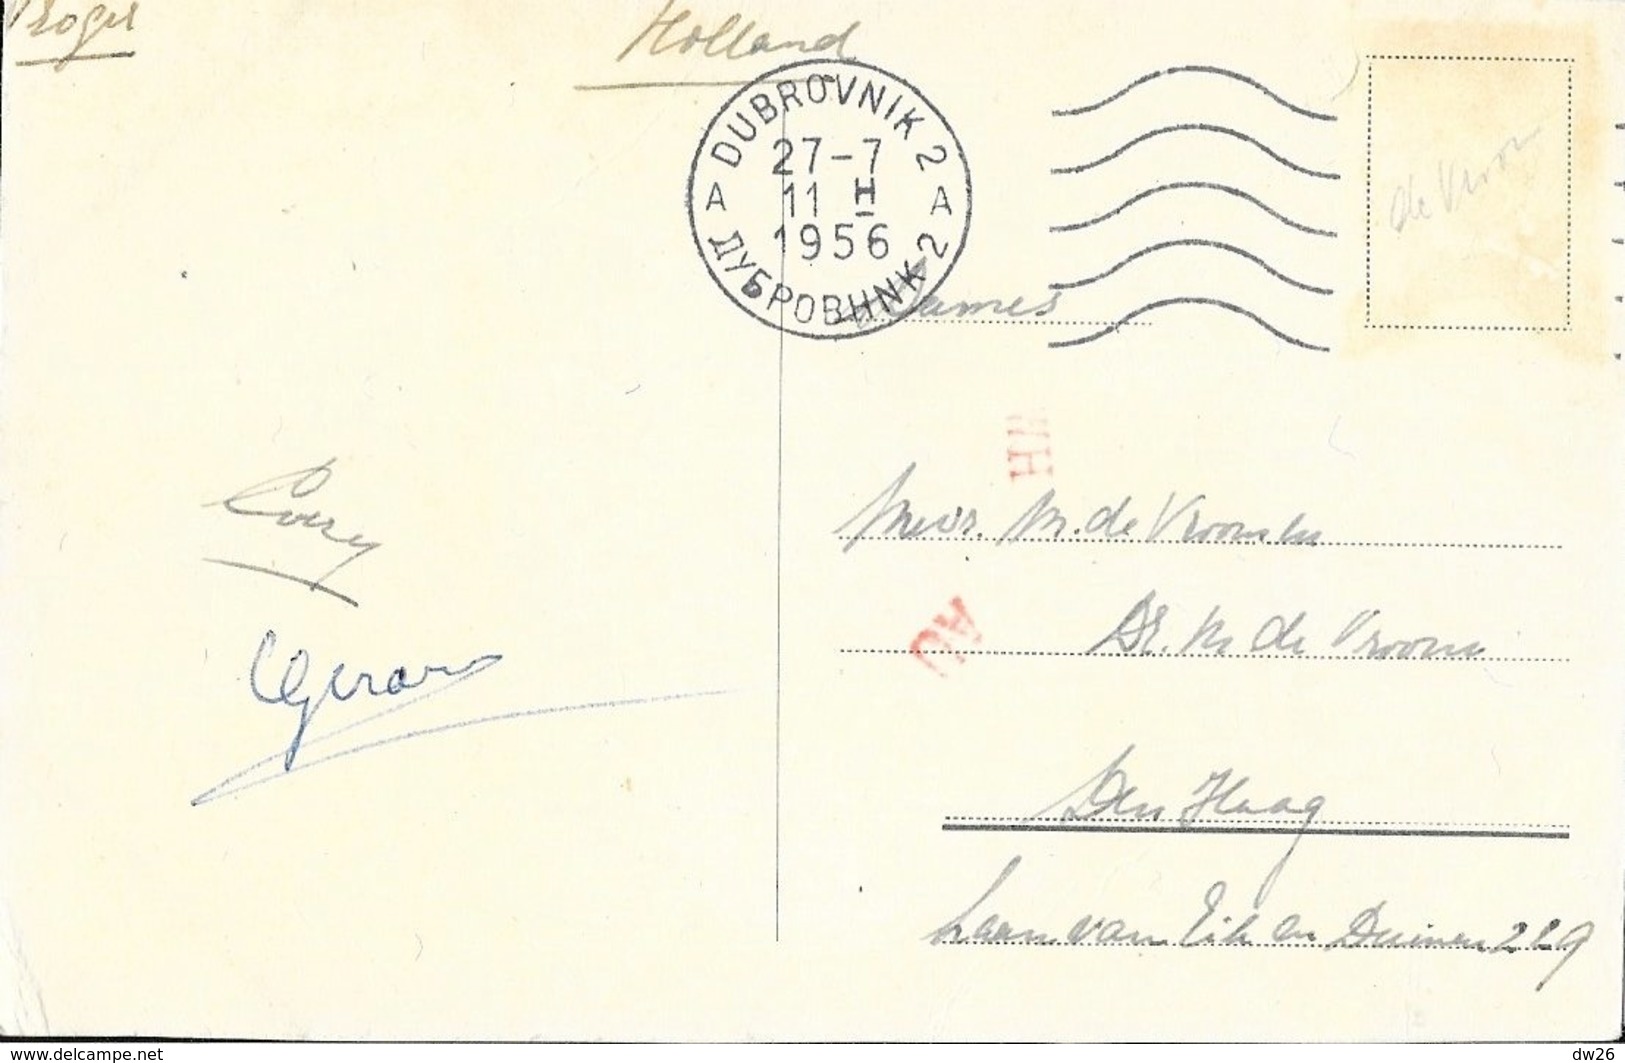 Holland
DUBROVNIK 2
27-7
11 H
1956
A A
ДУБРОВНИК 2
de Vroom
Dames
HH
Mevr. M. de Vroom
Cory
AU
Dr. M de Vroom
Gerard
Den Haag
Laan van Eik en Duinen 229
www.delcampe.net
dw26